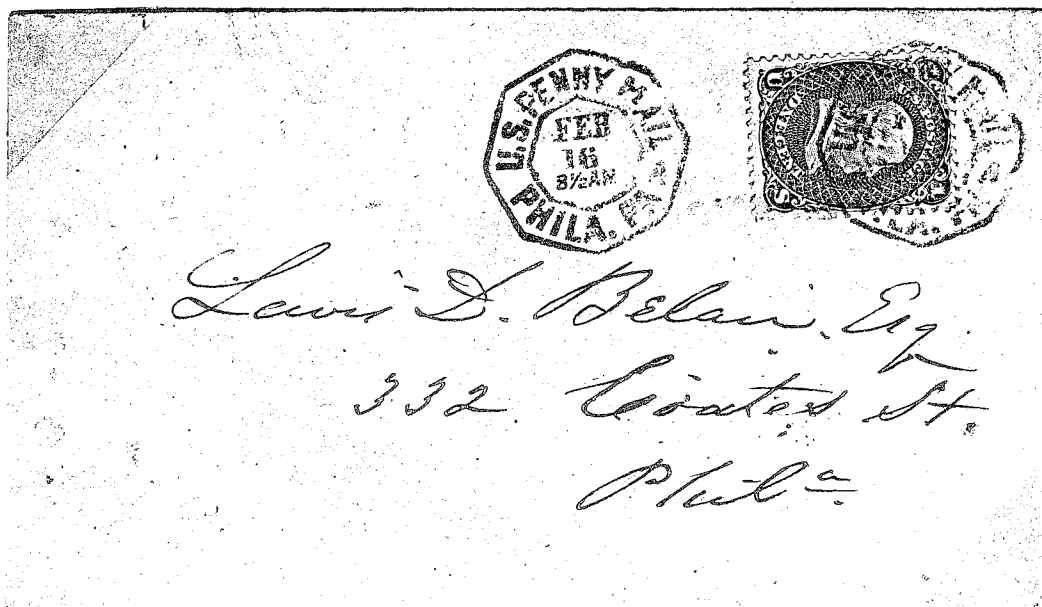 U.S. PENNY MAIL
FEB
16
8½AM
PHILA. PA
U.S. POSTAGE
Lewis D. Belair, Esq.
332 Coates St.
Phila